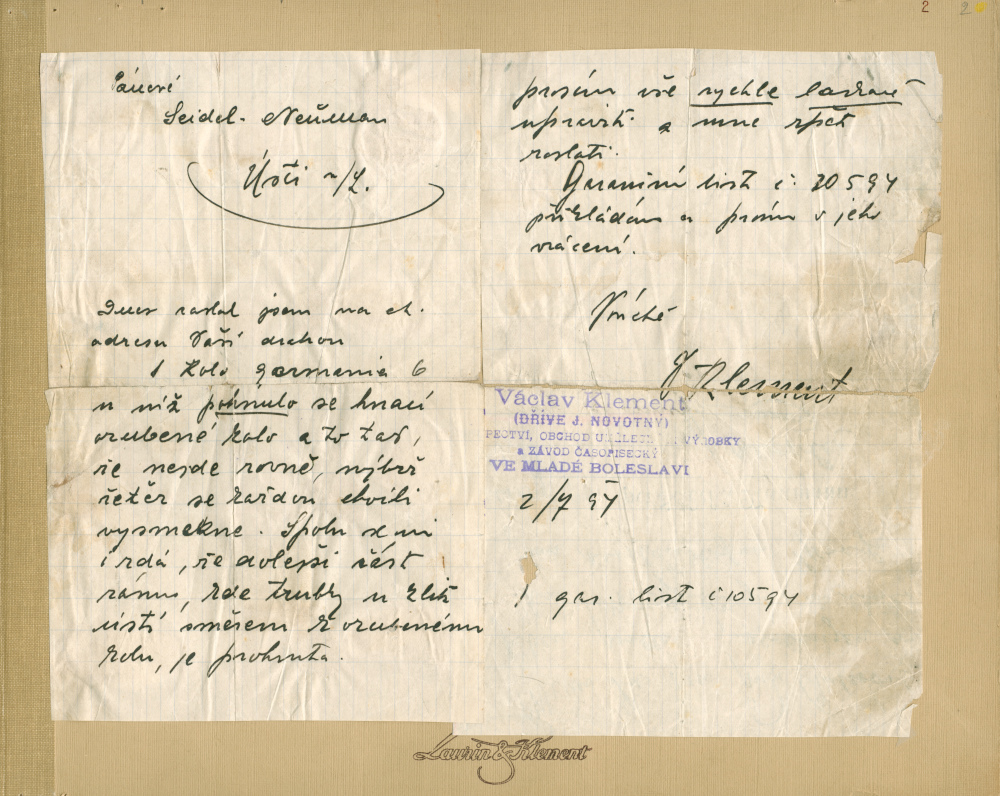 2
2
Pánové
Seidel - Neuman
Ústi n/L.
Dnes zaslal jsem na ct.
adresu Vaší drahou
1 Kolo germania 6
u níž pohnulo se hnací
ozubené kolo a to tak,
že nejde rovně, nýbrž
řetěz se každou chvíli
vysmekne. Spolu se mi
i zdá, že dolejší část
rámu, kde trubky u klik
ústí směrem k ozubenému
kolu, je prohnuta.
prosím vše rychle laskavě
upraviti a mne zpět
zaslati.
Garanční list č: 20594
přikládám a prosím o jeho
vrácení.
V úctě
Klement
Václav Klement
(DŘÍVE J. NOVOTNÝ)
OBCHOD VÝROBKY
a ZÁVOD ČASOPISECKÝ
VE MLADÉ BOLESLAVI
2/7 95
1 gar. list č 10594
Laurin & Klement